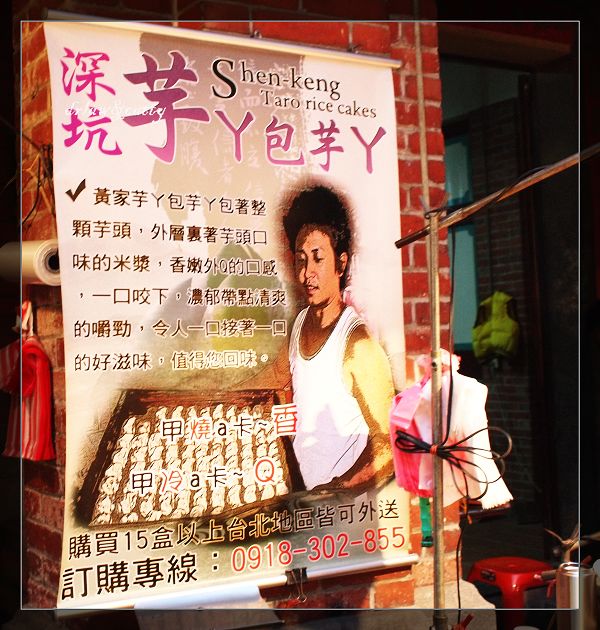 深坑
Shen-keng
Taro rice cakes
芋ㄚ包芋ㄚ
黃家芋ㄚ包芋ㄚ包著整
顆芋頭，外層裏著芋頭口
味的米漿，香嫩外Q的口感
，一口咬下，濃郁帶點清爽
的嚼勁，令人一口接著一口
的好滋味，值得您回味。
甲燒a卡~香
甲冷a卡~Q
購買15盒以上台北地區皆可外送
訂購專線：0918-302-855